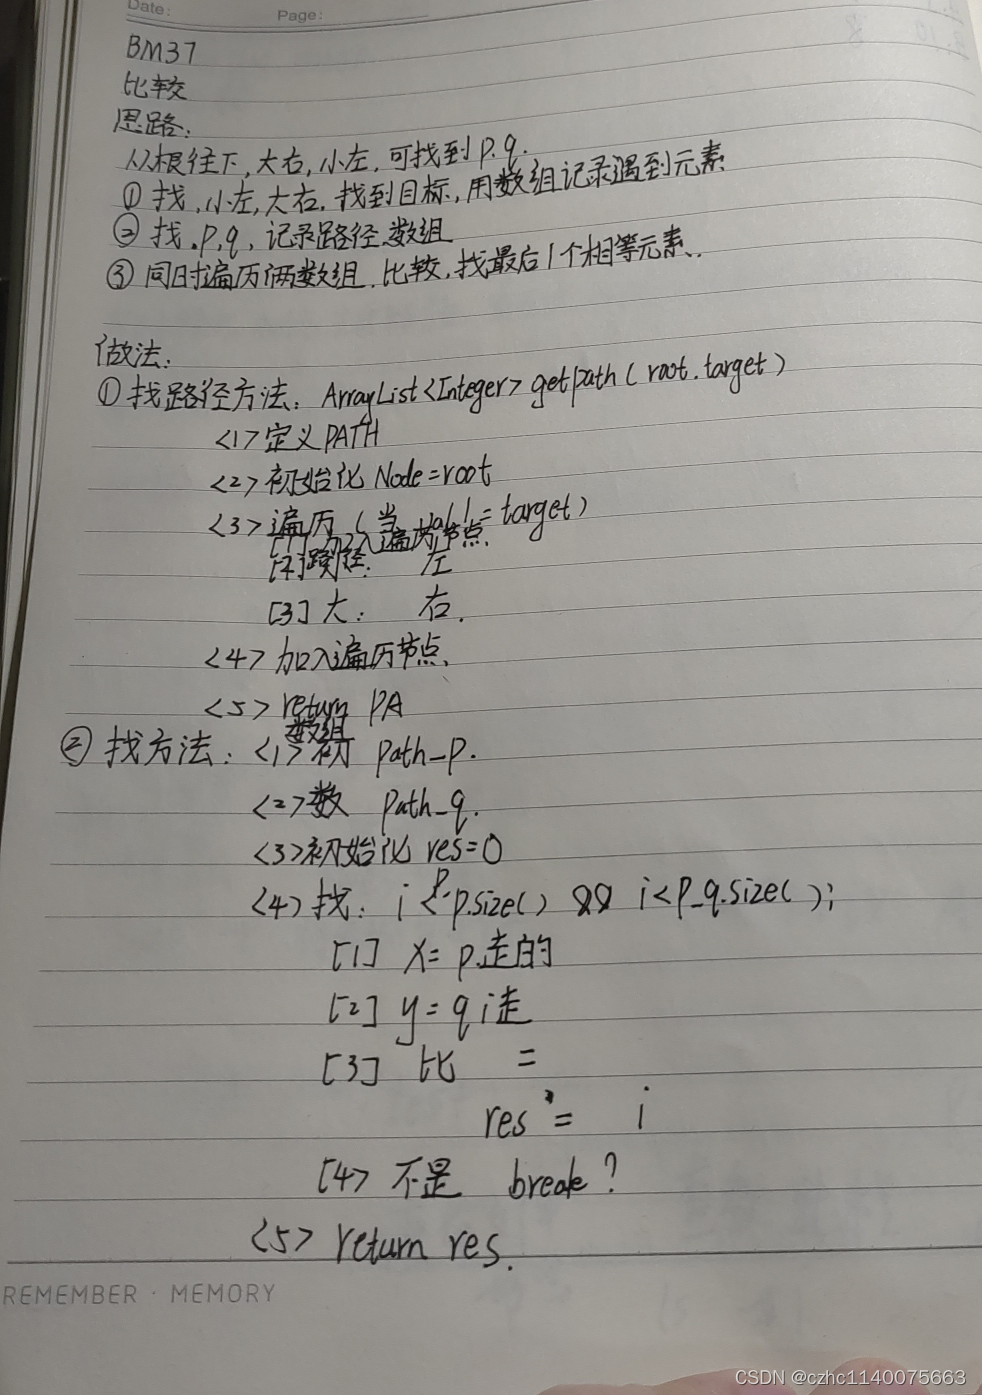 Date:
Page:
BM37
比较
思路:
从根往下,大右,小左,可找到p.q.
①找,小左,大右,找到目标,用数组记录遇到元素
②找.p,q,记录路径.数组
③同时遍历俩数组.比较,找最后1个相等元素..
做法:
①找路径方法: ArrayList<Integer> getpath(root.target)
<1>定义PATH
<2>初始化 Node=root
<3>遍历(当 val!=target)
加入遍历节点.
[2] 左
[3]大: 右.
<4>加入遍历节点.
<5>return PA
数组
②找方法: <1>初 path_p.
<2>数 path_q.
<3>初始化 res=0
<4>找: i<p_p.size() && i<p_q.size();
[1] x= p.走的
[2] y= q i走
[3] 比 =
res = i
[4> 不是 break?
<5> return res.
REMEMBER · MEMORY
CSDN @czhc1140075663